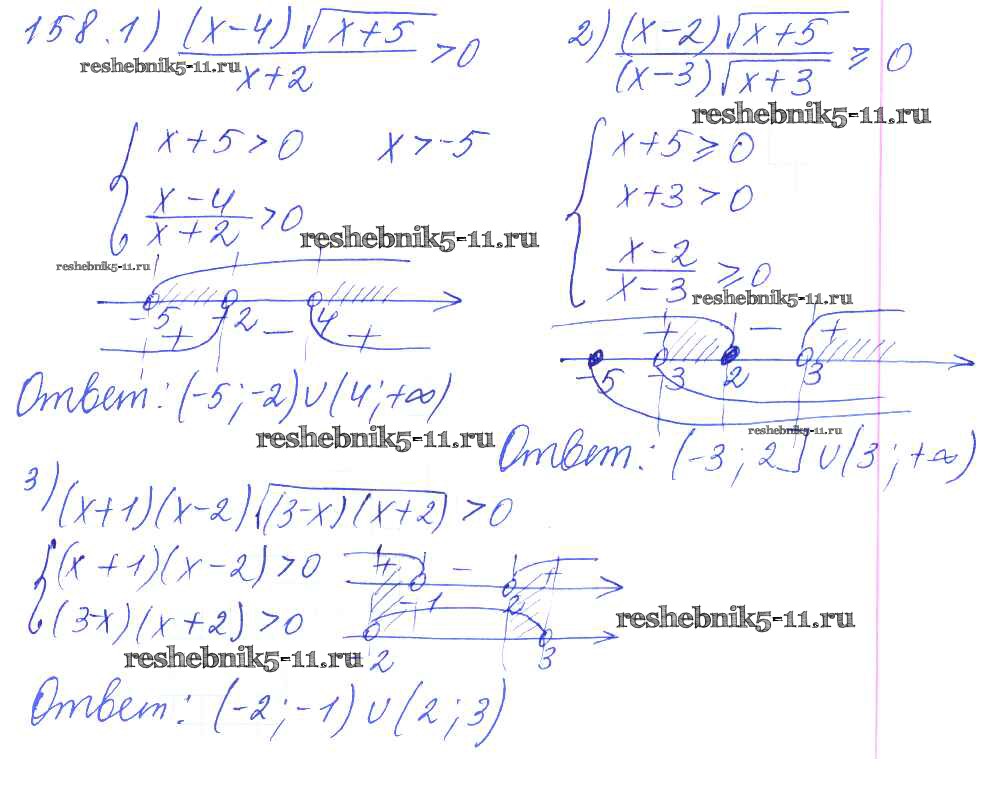 158. 1) (x-4)√(x+5) / (x+2) > 0
reshebnik5-11.ru
{ x+5>0 x>-5
(x-4)/(x+2) > 0
reshebnik5-11.ru
reshebnik5-11.ru
-5 -2 4
+ − +
Ответ: (-5; -2) ∪ (4; +∞)
reshebnik5-11.ru
2) (x-2)√(x+5) / (x-3)√(x+3) ≥ 0
reshebnik5-11.ru
{ x+5≥0
x+3>0
(x-2)/(x-3) ≥0
reshebnik5-11.ru
+ − +
-5 -3 2 3
reshebnik5-11.ru
Ответ: (-3; 2] ∪ (3; +∞)
3) (x+1)(x-2)√((3-x)(x+2)) > 0
{ (x+1)(x-2)>0
(3-x)(x+2)>0
+ − +
-1 2
-2 3
reshebnik5-11.ru
reshebnik5-11.ru
Ответ: (-2; -1) ∪ (2; 3)